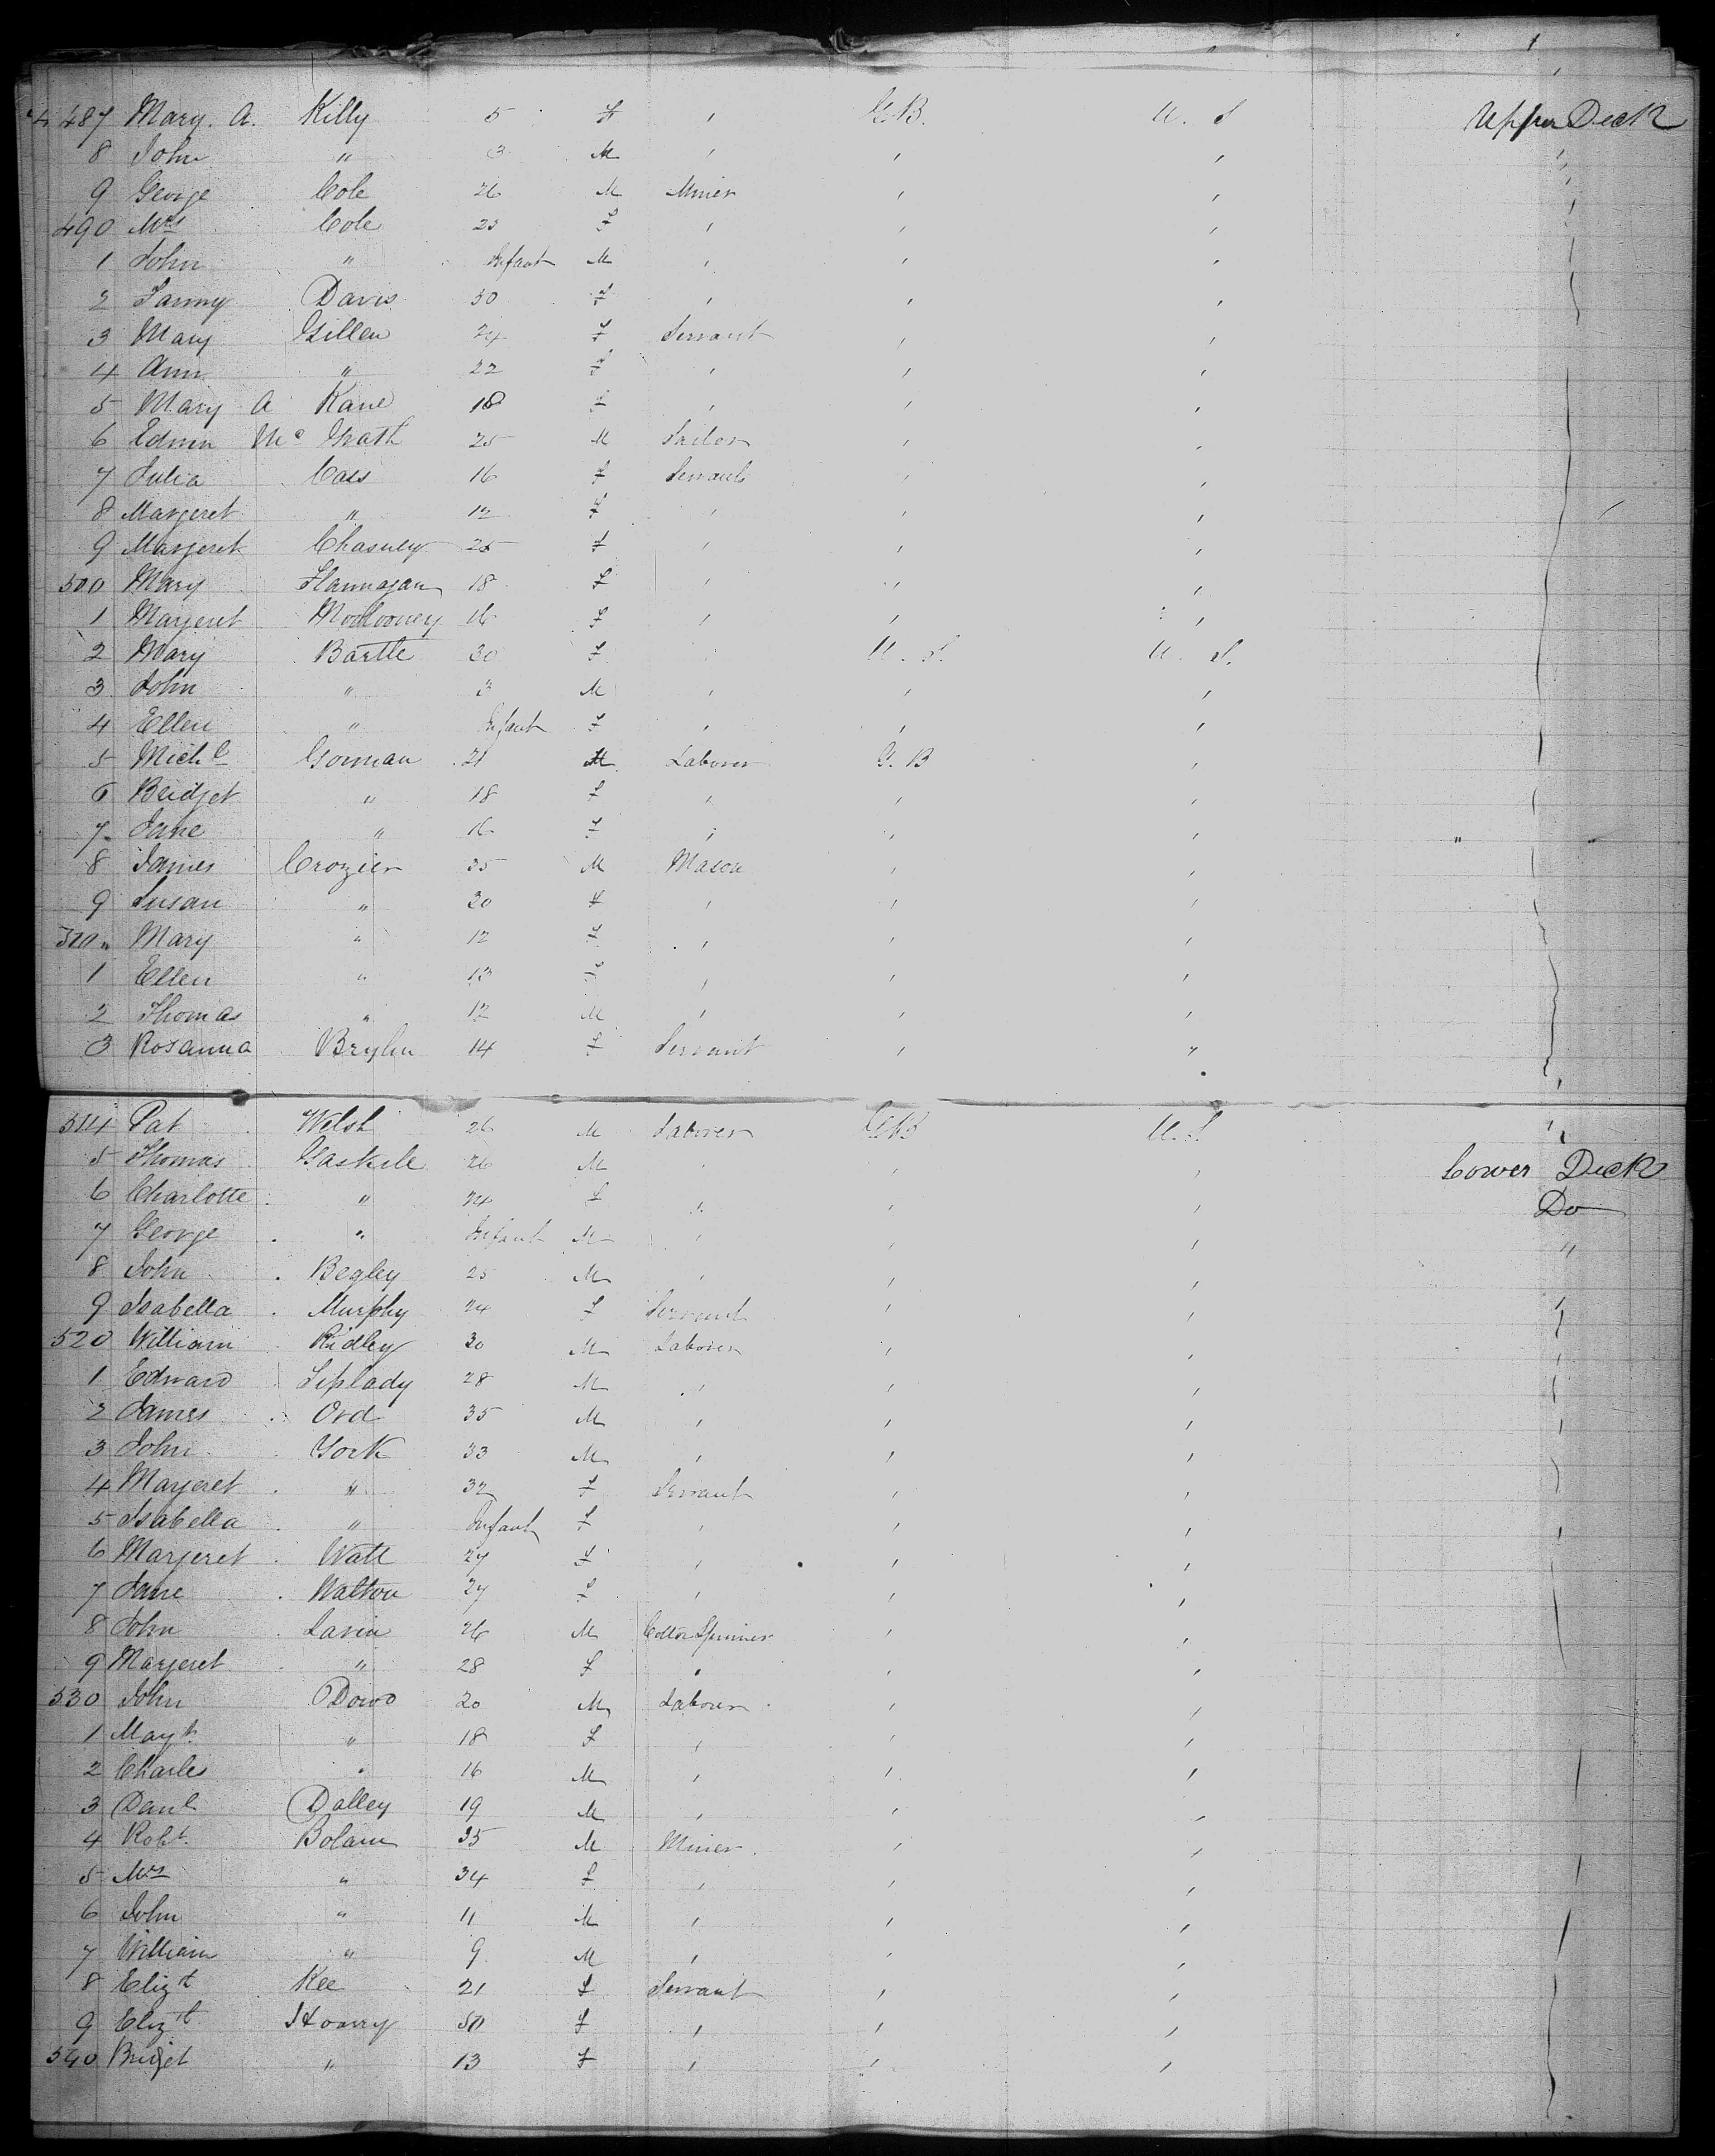 487 Mary. A. Killy 5 f , G.B. U. S Upper Deck
8 John " 3 M , , ,
9 George Cole 26 M Miner , ,
490 Mrs Cole 25 f , , ,
1 John " Infant M , , ,
2 Fanny Davis 30 f , , ,
3 Mary Gillen 24 f Servant , ,
4 Ann " 22 f , , ,
5 Mary A Kane 18 f , , ,
6 Edmn Mc Grath 25 M Sailor , ,
7 Julia Cass 16 f Servant , ,
8 Margeret " 12 f , , ,
9 Margeret Chasney 25 f , , ,
500 Mary Flannagan 18 f , , ,
1 Margeret 16 f , , ,
2 Mary Bartle 30 f , U. S. U. S.
3 John " 3 M , , ,
4 Ellen " Infant f , , ,
5 Michl Gorman 21 M Laborer G. B ,
6 Bridget " 18 f , , ,
7 Jane " 16 f , , , "
8 James Crozier 35 M Mason , ,
9 Susan " 30 f , , ,
510 " Mary " 12 f , , ,
1 Ellen " 13 f , , ,
2 Thomas " 12 M , , ,
3 Rosanna 14 f Servant , "
514 Pat Welsh 26 M Laborer G.B U. S.
5 Thomas Gaskele 26 M , , , Lower Deck
6 Charlotte " 24 f , , , Do
7 George " Infant M , , , "
8 John Begley 25 M , , ,
9 Isabella Murphy 24 f Servant , ,
520 William Ridley 30 M Laborer , ,
1 Edward Liplady 28 M , , ,
2 James Ord 35 M , , ,
3 John York 33 M , , ,
4 Margeret " 32 f Servant , ,
5 Isabella " Infant f , , ,
6 Margeret Watt 27 f , , ,
7 Jane Walton 27 f , , ,
8 John Lavin 26 M Cotton Spinner , ,
9 Margeret " 28 f " , ,
530 John Dowd 20 M Laborer , ,
1 Magt " 18 f , , ,
2 Charles " 16 M , , ,
3 Danl Dalley 19 M , , ,
4 Robt. Bolam 35 M Miner , ,
5 Mrs " 34 f , , ,
6 John " 11 M , , ,
7 William " 9 M , , ,
8 Elizt Kee 21 f Servant , ,
9 Elizt 50 f , , ,
540 Bridget " 13 f , , ,